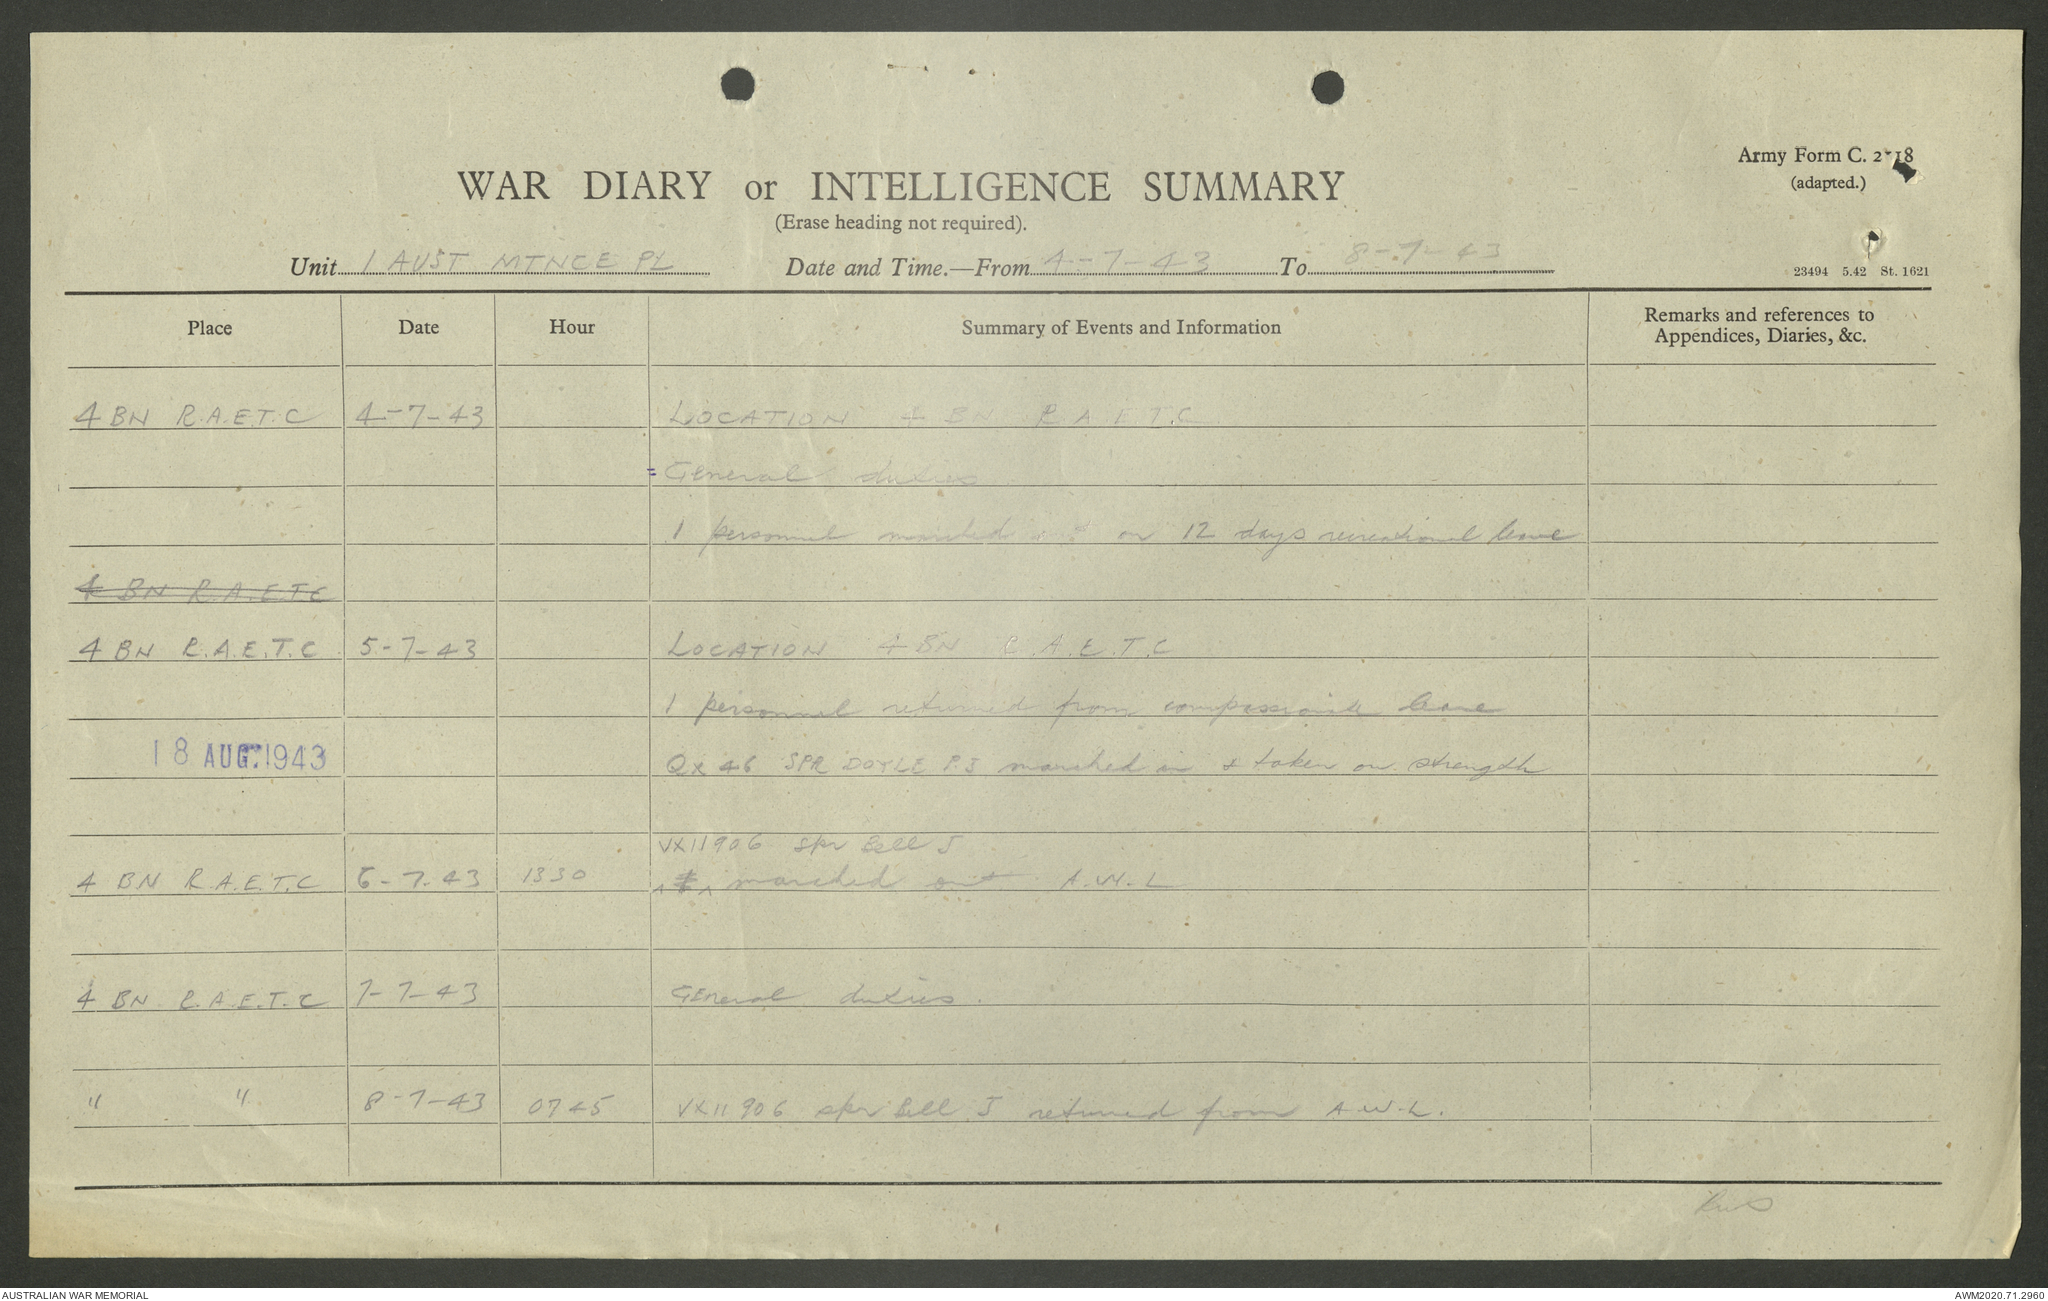 Army Form C. 2118
(adapted.)
WAR DIARY or INTELLIGENCE SUMMARY
(Erase heading not required).
Unit 1 AUST MTNCE PL Date and Time.—From 4-7-43 To 8-7-43
23494 5.42 St. 1621
Place Date Hour Summary of Events and Information Remarks and references to Appendices, Diaries, &c.
4 BN R.A.E.T.C 4-7-43 LOCATION 4 BN R A E T.C
General duties
1 personnel marched out on 12 days recreational leave
4 BN R.A.E.T.C
4 BN R.A.E.T.C 5-7-43 LOCATION 4 BN R.A.E.T.C
1 personnel returned from compassionate leave
18 AUG. 1943 QX 46 SPR DOYLE P.J marched in & taken on strength
VX11906 Spr Bell J
4 BN R.A.E.T.C 6-7.43 1330 marched out A.W.L
4 BN R.A.E.T.C 7-7-43 General duties.
" " 8-7-43 0745 VX11906 Spr Bell J returned from A.W.L.
AUSTRALIAN WAR MEMORIAL AWM2020.71.2960